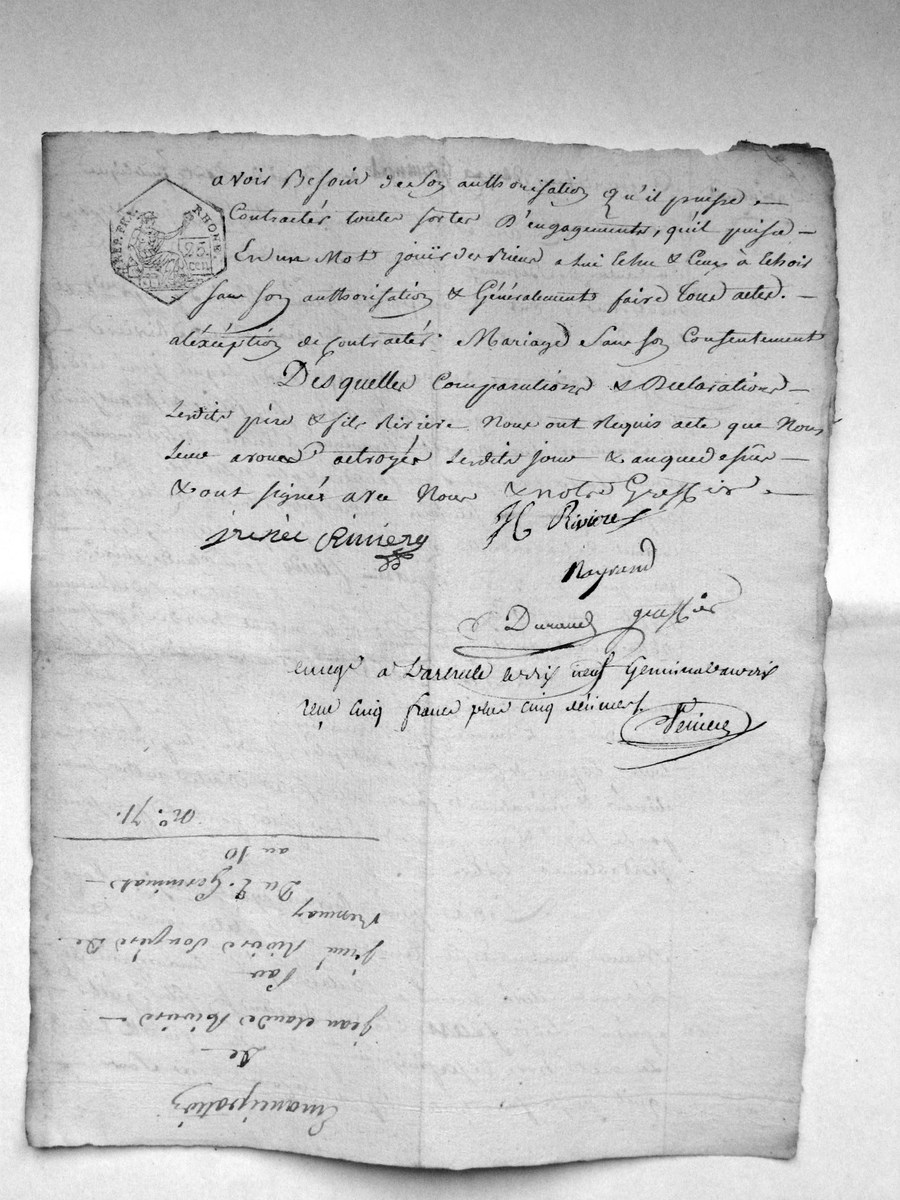 REP. FRA. RHONE.
25 CEN
avoir Besoin de Son authorisation qu'il puisse
Contracter toutes sortes D'engagements, qu'il puisse
En un Mot jouir des Biens a lui Echu & Ceux à Echoir
Sans Son authorisation & Généralement faire tous actes.
aléxéption de contracter Mariage Sans Son Consentement
Desquelles Comparutions & Déclarations
Lesdits père & fils Rivière Nous ont Requis acte que Nous
Leur avons octroyés Lesdits jour & an que dessus
& ont signés avec Nous & notre Greffier
irénée Riviere
JC Riviere
Raynaud
Durand greffier
Enregé a Larbresle le dix neuf Germinal an dix
reçu Cinq francs plus Cinq décimes.
Emancipation
De
jean claude Rivière
Par
irené Rivière Son père De
Bessenay
Du 7. Germinal
an 10
No. 71.